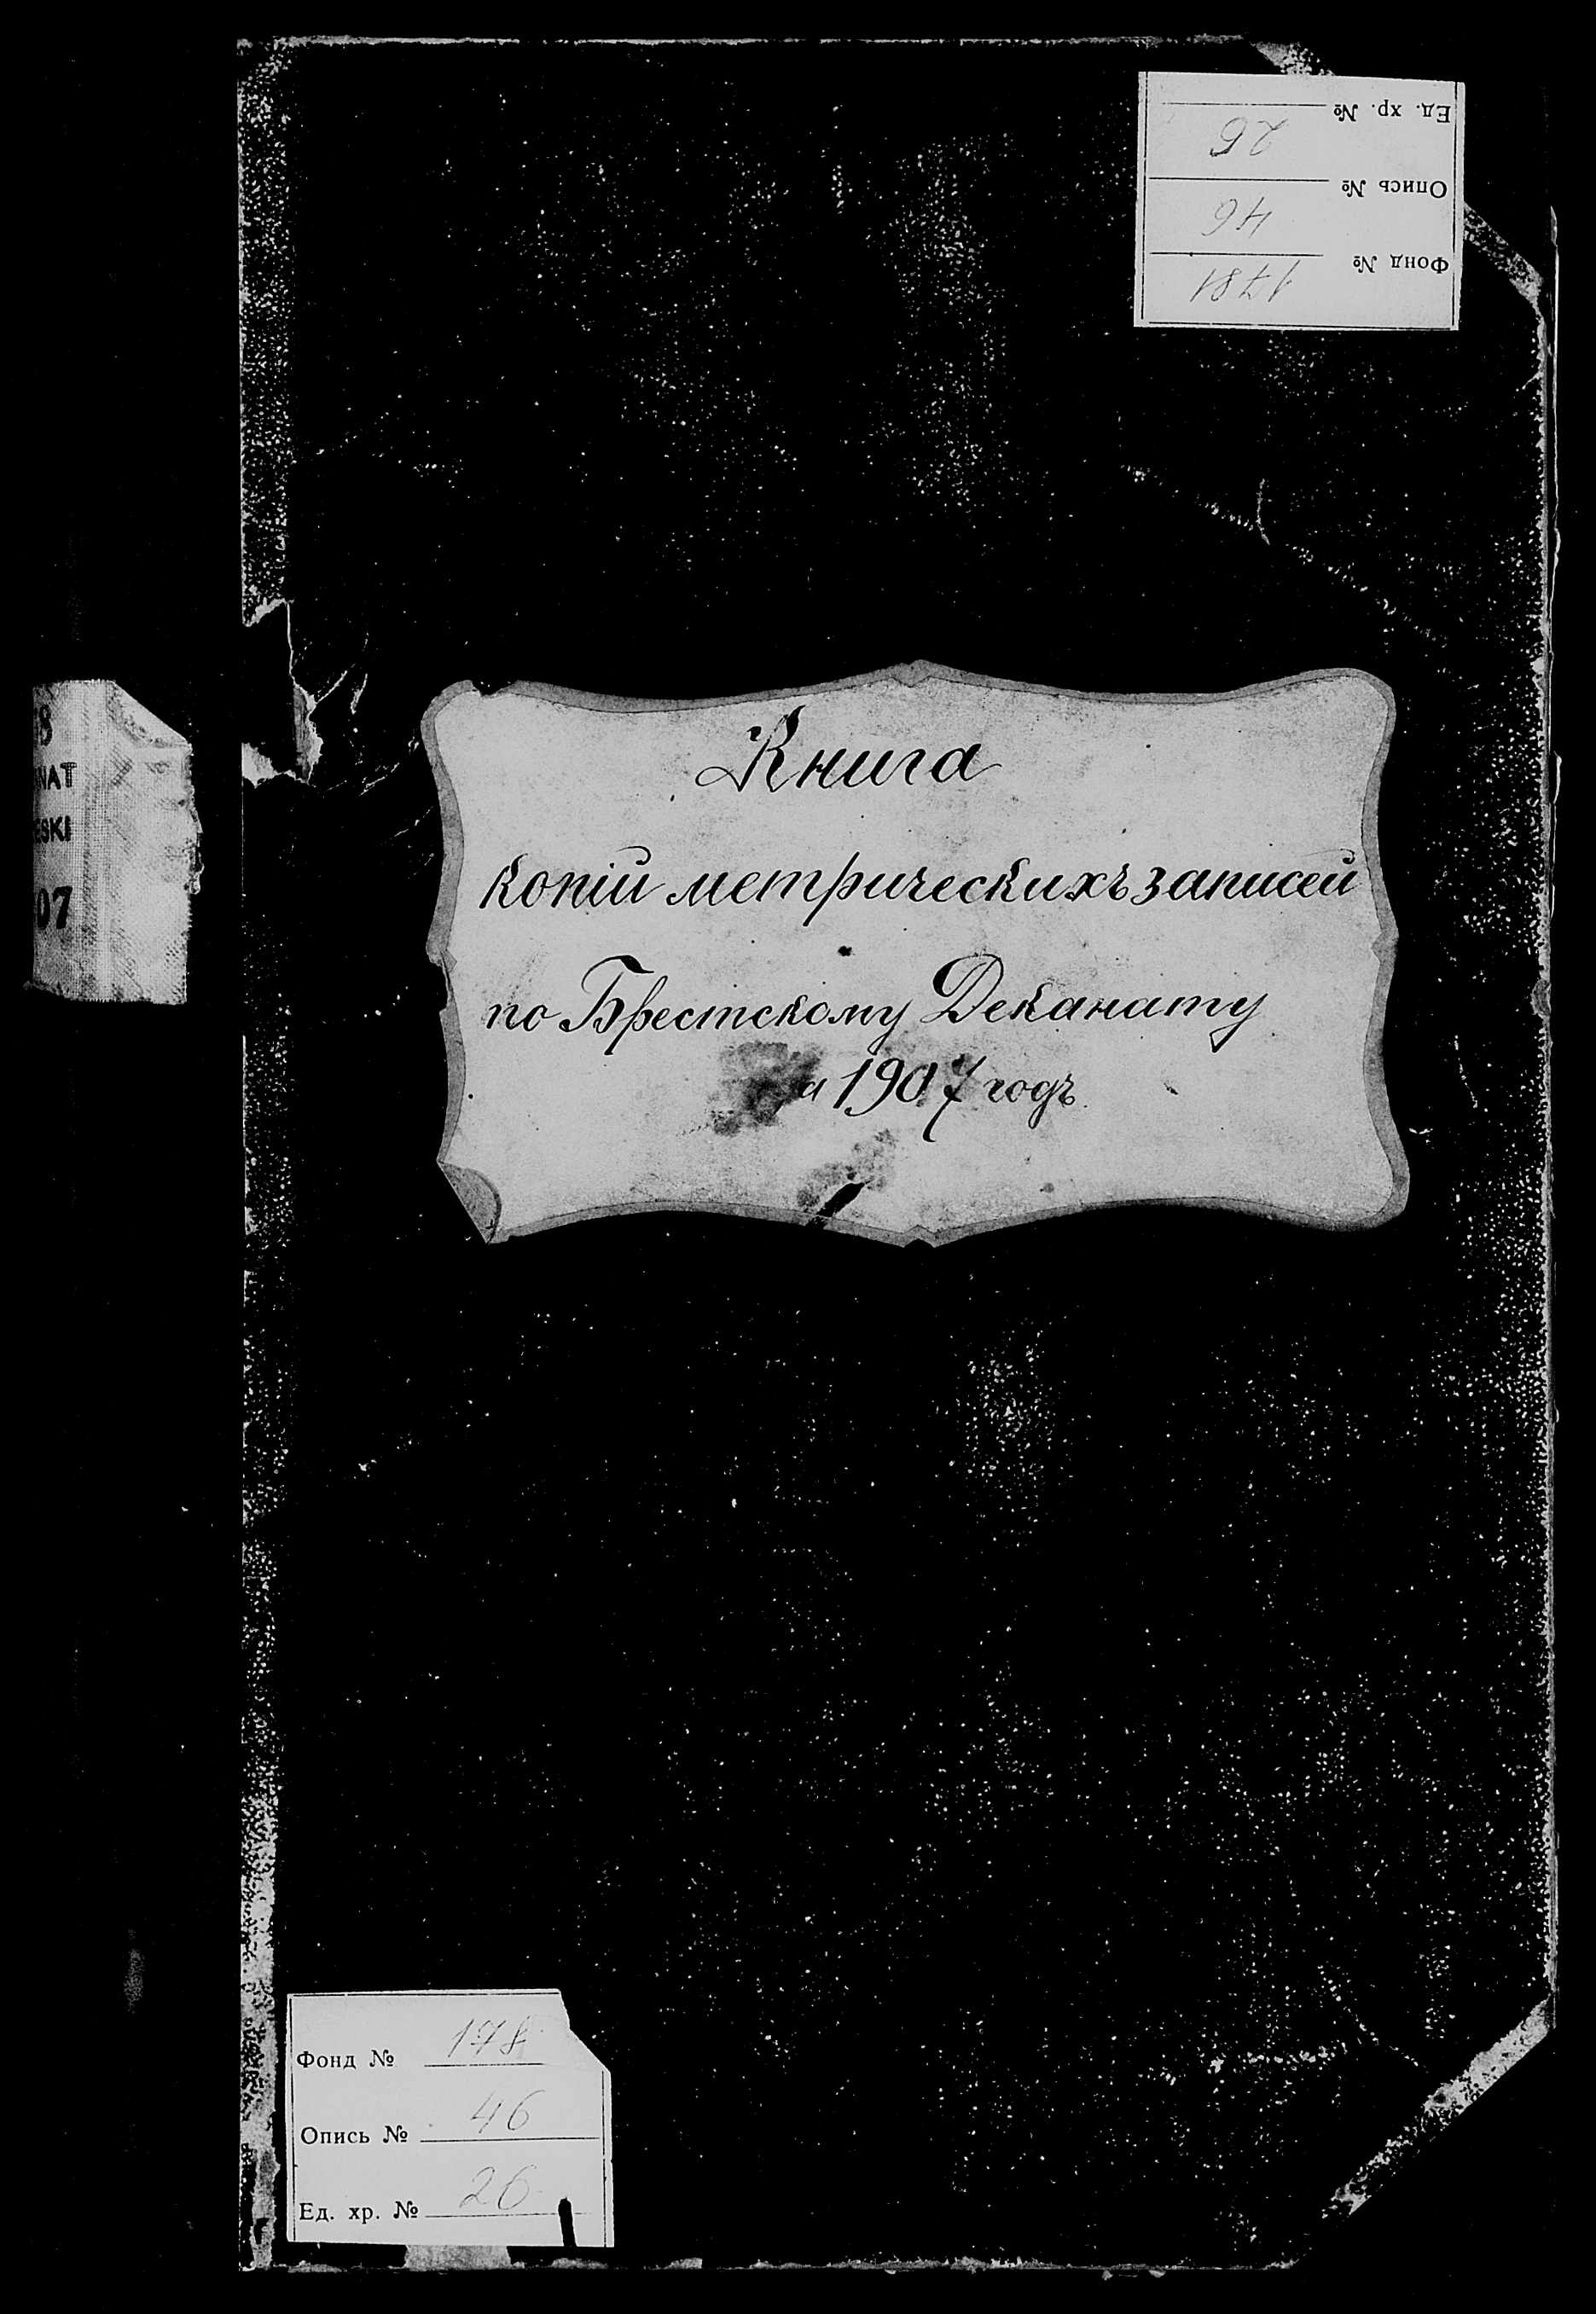 Ед. хр. №
26
Опись №
46
Фонд №
1781
8
NAT
ESKI
07
Книга
копій метрическихъ записей
по Брестскому Деканату
а 1907 годъ
Фонд № 178
Опись № 46
Ед. хр. № 26